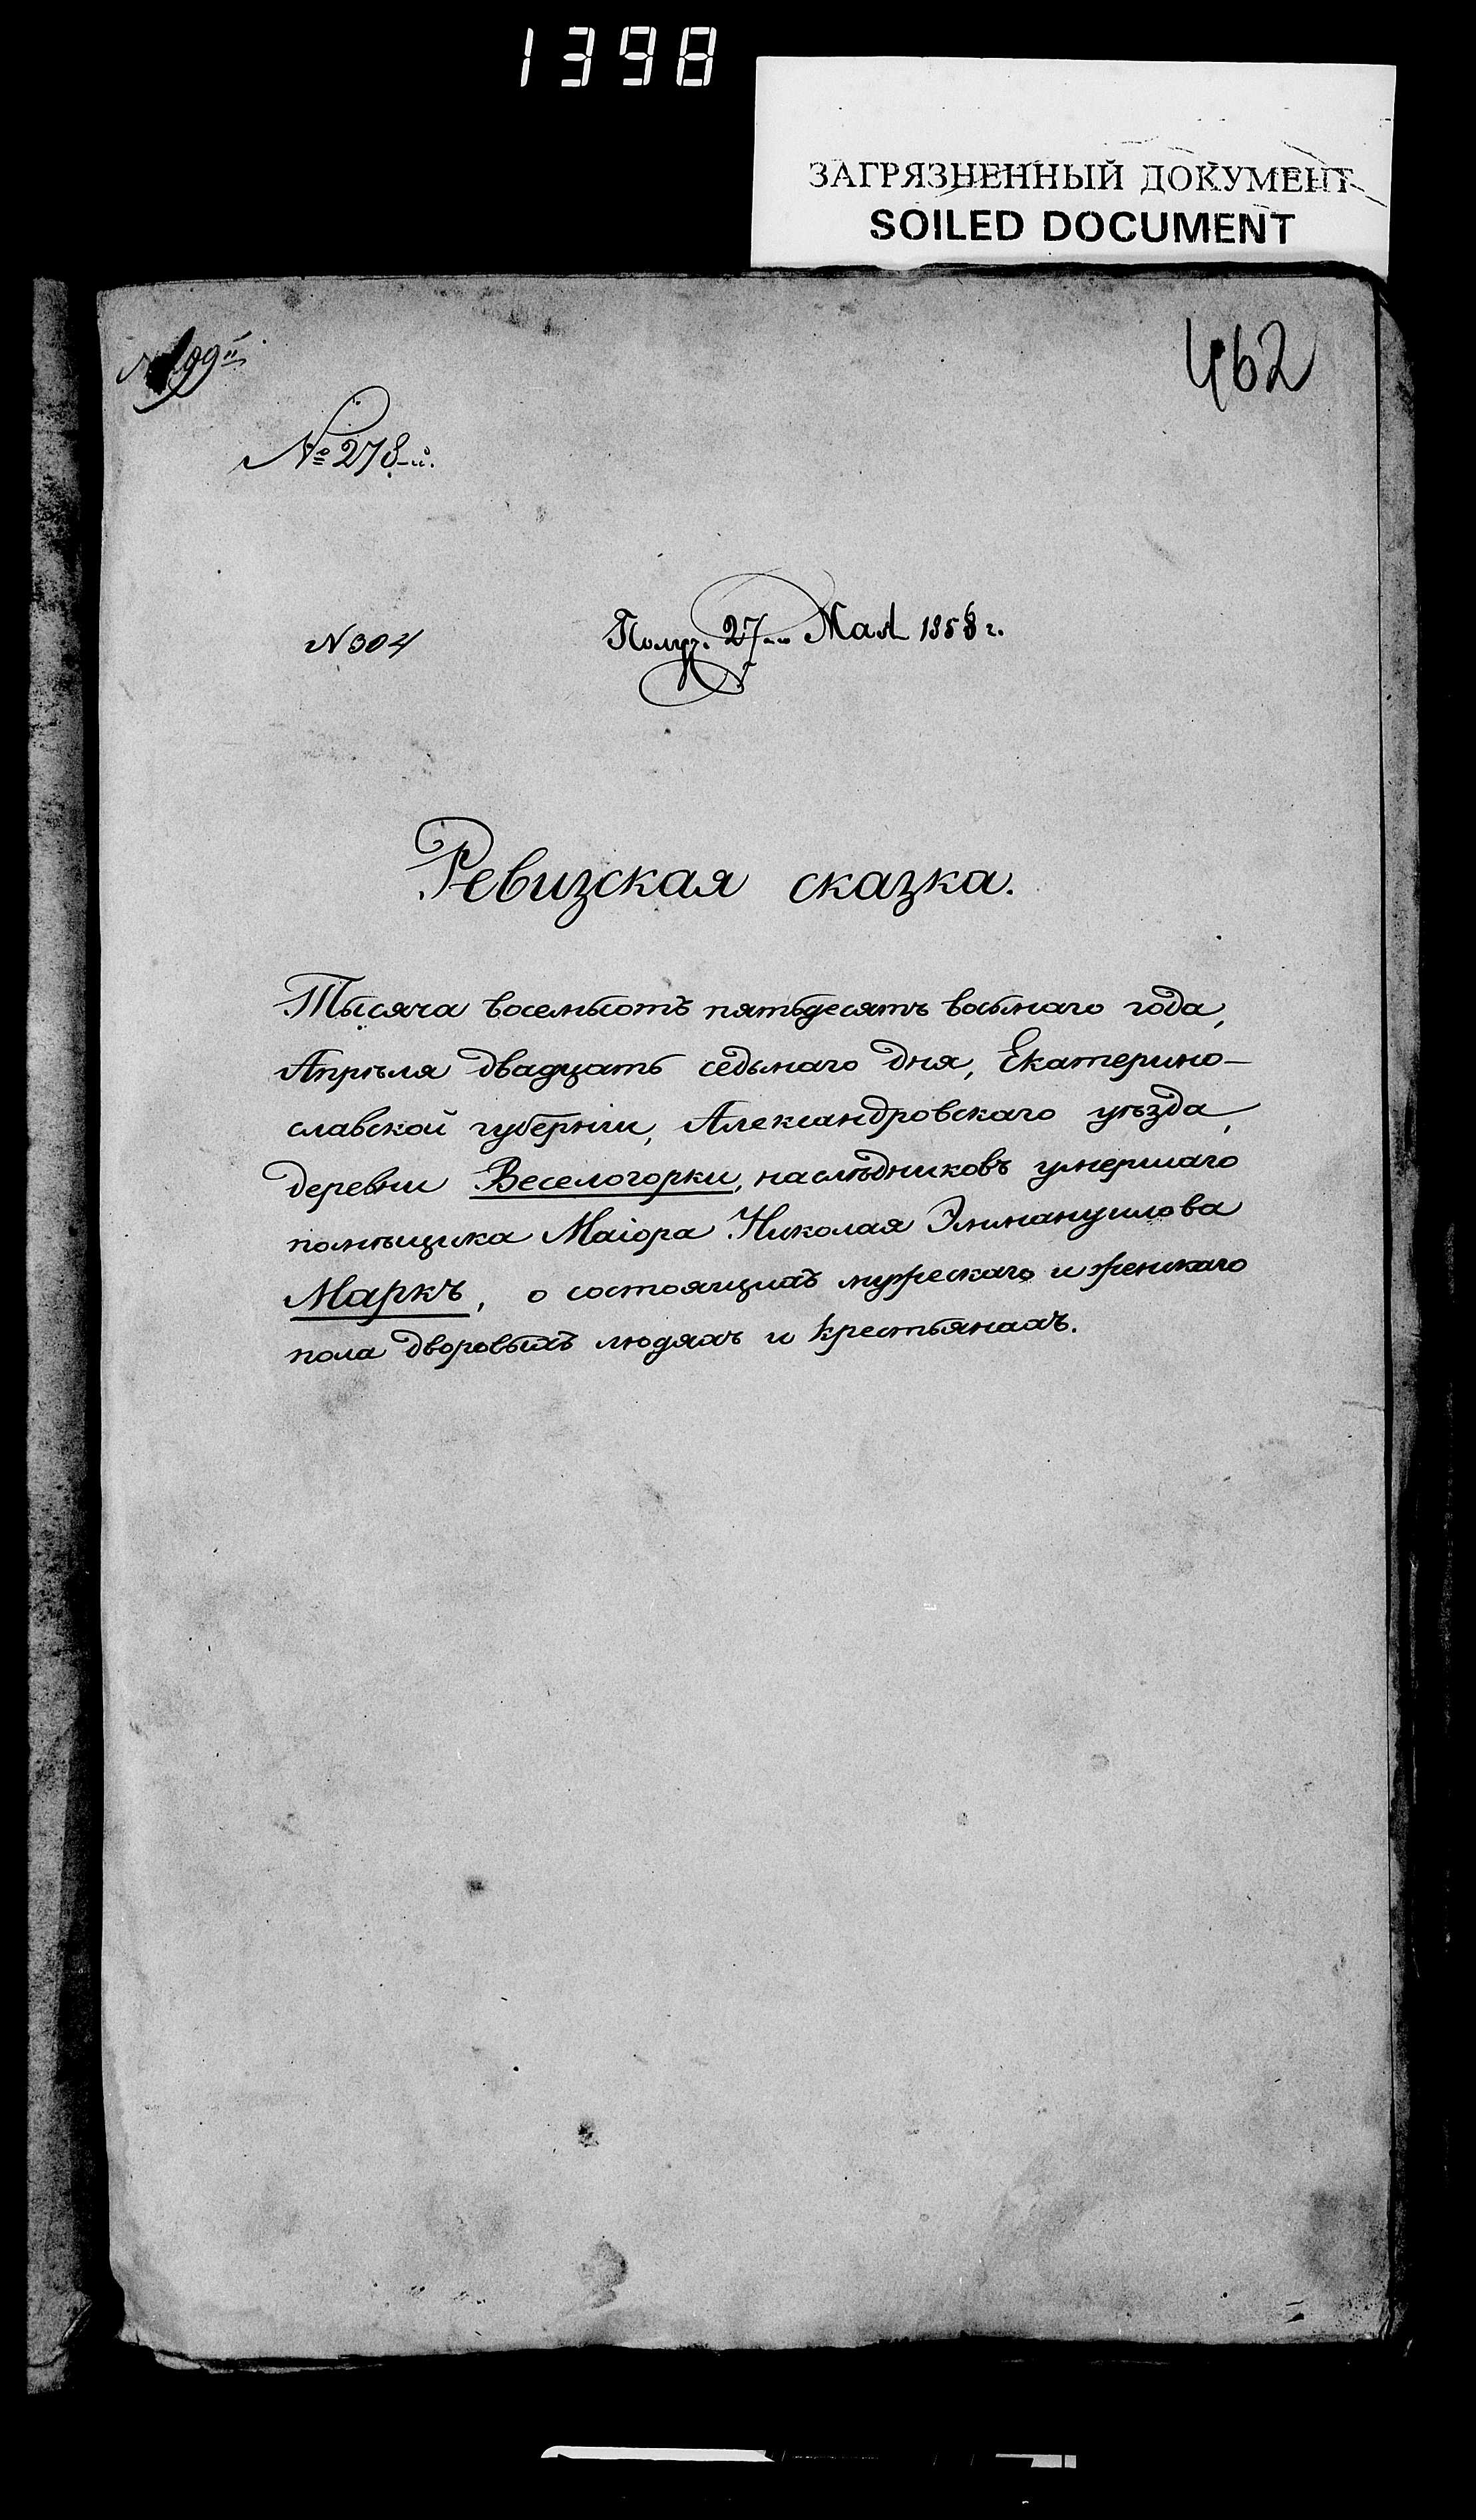 1398
ЗАГРЯЗНЕННЫЙ ДОКУМЕНТ
SOILED DOCUMENT
462
№ 278-й.
N 304
Получ. 27-го Мая 1858 г.
Ревизская сказка.
Тысяча восемьсотъ пятьдесятъ восьмаго года,
Апрѣля двадцать седьмаго дня, Екатерино-
славской губерніи, Александровскаго уѣзда,
деревни Веселогорки, наслѣдниковъ умершаго
помѣщика Маіора Николая Эммануилова
Маркъ, о состоящихъ мужескаго и женскаго
пола дворовыхъ людяхъ и крестьянахъ.